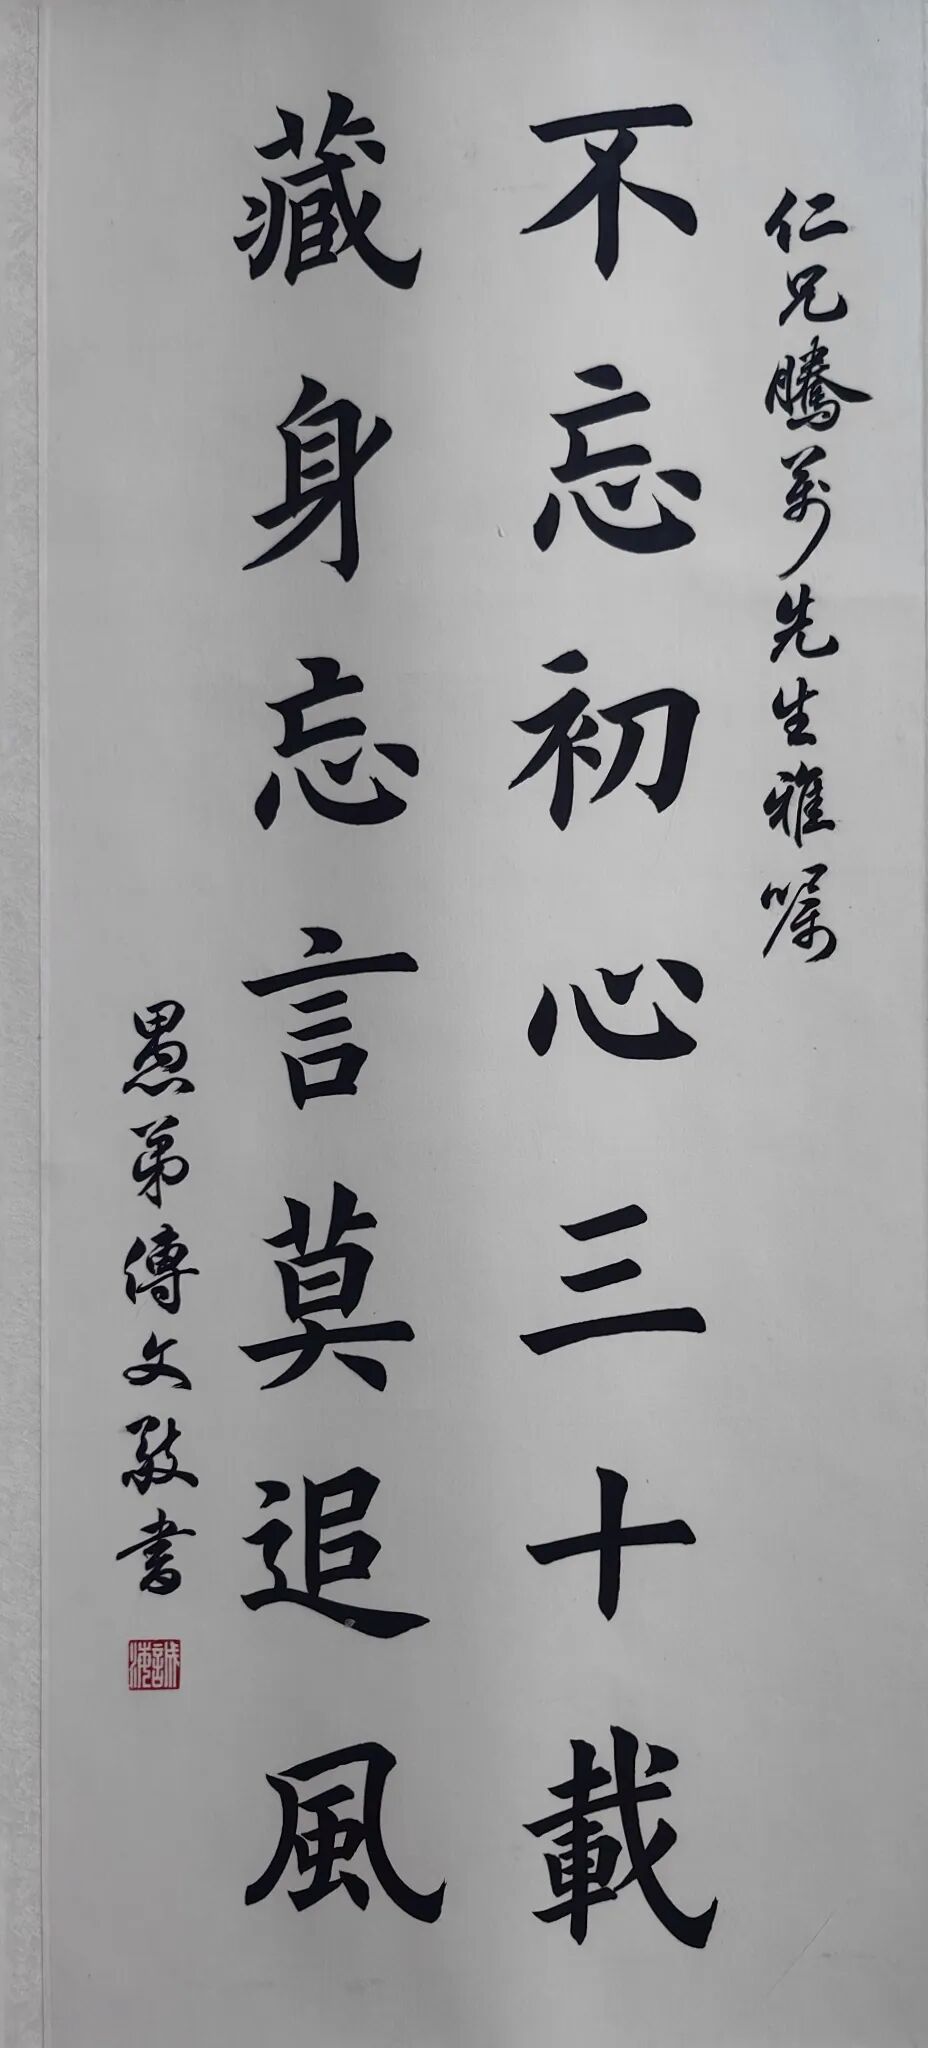 仁兄騰萬先生雅嘱
不忘初心三十載
藏身忘言莫追風
愚弟傳文敬書
誠海